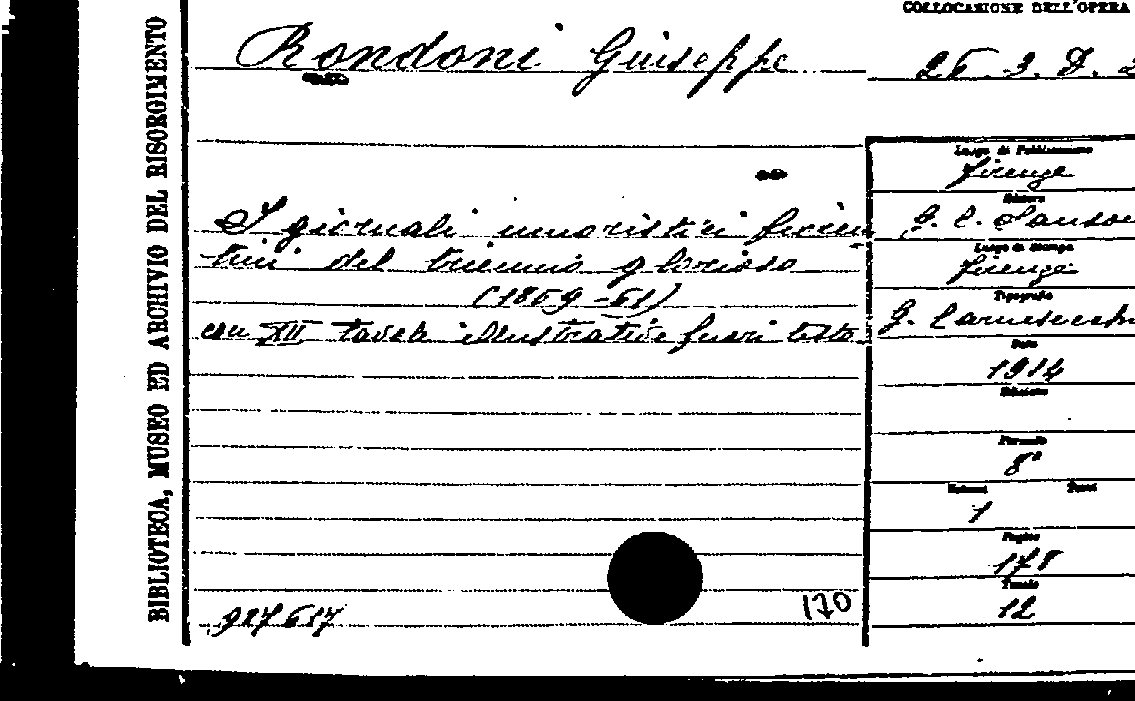 COLLOCAZIONE DELL'OPERA
Rondoni Giuseppe
26. 3. D. 2
BIBLIOTECA, MUSEO ED ARCHIVIO DEL RISORGIMENTO
I giornali umoristici fioren
tini del triennio glorioso
(1859-61)
con XII tavole illustrative fuori testo
Luogo di Pubblicazione
Firenze
Editore
G. C. Sanson
Luogo di Stampa
Firenze
Tipografia
G. Carnesecchi
Data
1914
Edizione
Formato
8°
Volumi
Tomi
1
Pagine
178
Tavole
12
927617
170